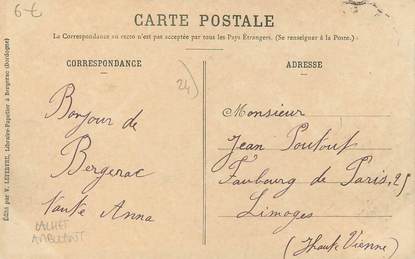 6€
CARTE POSTALE
La Correspondance au recto n'est pas acceptée par tous les Pays Étrangers. (Se renseigner à la Poste.)
CORRESPONDANCE
ADRESSE
24)
Bonjour de
Bergerac
tante Anna
CACHET
AMBULANT
Monsieur
Jean Poutout
Faubourg de Paris, 25
Limoges
(Haute Vienne)
Édité par V. LEFEBVRE, Libraire-Papetier à Bergerac (Dordogne)